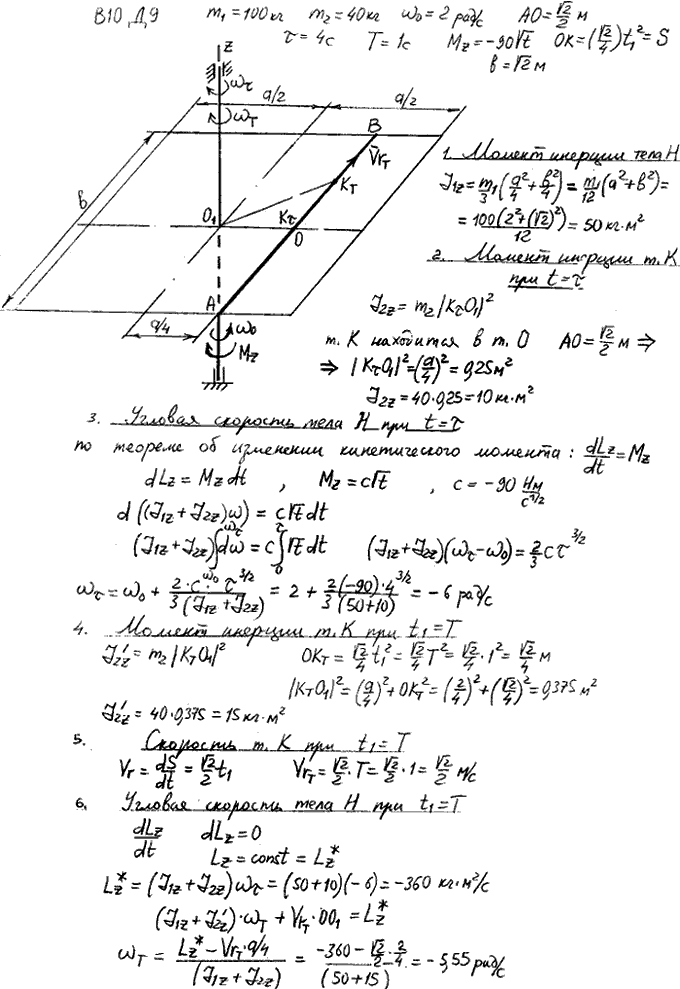 В10, Д9 m₁=100кг m₂=40кг ω₀=2 рад/с AO=√2/2 м
τ=4с T=1с M_z=-90√t OK=(√2/4)t₁²=S
в=√2 м
z
ω_τ
a/2 a/2
ω_T
B
V̄r_T
K_T
в
O₁ K_τ
O
A
a/4
ω₀
M_z
1. Момент инерции тела H
J₁z=m₁/3(a²/4+в²/4)=m₁/12(a²+в²)=
=100(2²+(√2)²)/12=50 кг·м²
2. Момент инерции т. K
при t=τ
J₂z=m₂|K_τO₁|²
т. K находится в т. O AO=√2/2 м ⇒
⇒ |K_τO₁|²=(a/4)²=0,25м²
J₂z=40·0,25=10кг·м²
3. Угловая скорость тела H при t=τ
по теореме об изменении кинетического момента: dLz/dt=Mz
dLz=Mz dt , Mz=c√t , c=-90 Нм/с^1/2
d((J₁z+J₂z)ω)=c√t dt
(J₁z+J₂z)∫_ω₀^ω_τ dω=c∫_0^τ √t dt (J₁z+J₂z)(ω_τ-ω₀)=2/3 cτ^3/2
ω_τ=ω₀+2·c·τ^3/2/3(J₁z+J₂z)=2+2(-90)·4^3/2/3(50+10)=-6 рад/с
4. Момент инерции т. K при t₁=T
J₂z'=m₂|K_TO₁|² OK_T=√2/4 t₁²=√2/4 T²=√2/4·1²=√2/4 м
|K_TO₁|²=(a/4)²+OK_T²=(2/4)²+(√2/4)²=0,375 м²
J₂z'=40·0,375=15кг·м²
5. Скорость т. K при t₁=T
Vr=dS/dt=√2/2 t₁ Vr_T=√2/2·T=√2/2·1=√2/2 м/с
6. Угловая скорость тела H при t₁=T
dLz/dt dLz=0
Lz=const=Lz*
Lz*=(J₁z+J₂z)ω_τ=(50+10)(-6)=-360 кг·м²/с
(J₁z+J₂z')·ω_T+V_K_T·OO₁=Lz*
ω_T=Lz*-Vr_T·a/4/(J₁z+J₂z)=-360-√2/2·2/4/(50+15)=-5,55 рад/с